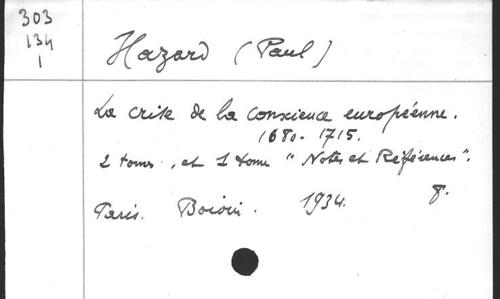 303
134
1
Hazard (Paul)
La crise de la conscience européenne.
1680-1715.
2 toms, et 1 tome "Notes et Références".
Paris. Boivin. 1934. 8.